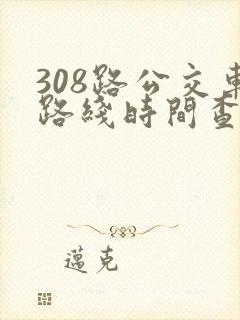 308路公交車
路綫時間查
邁克